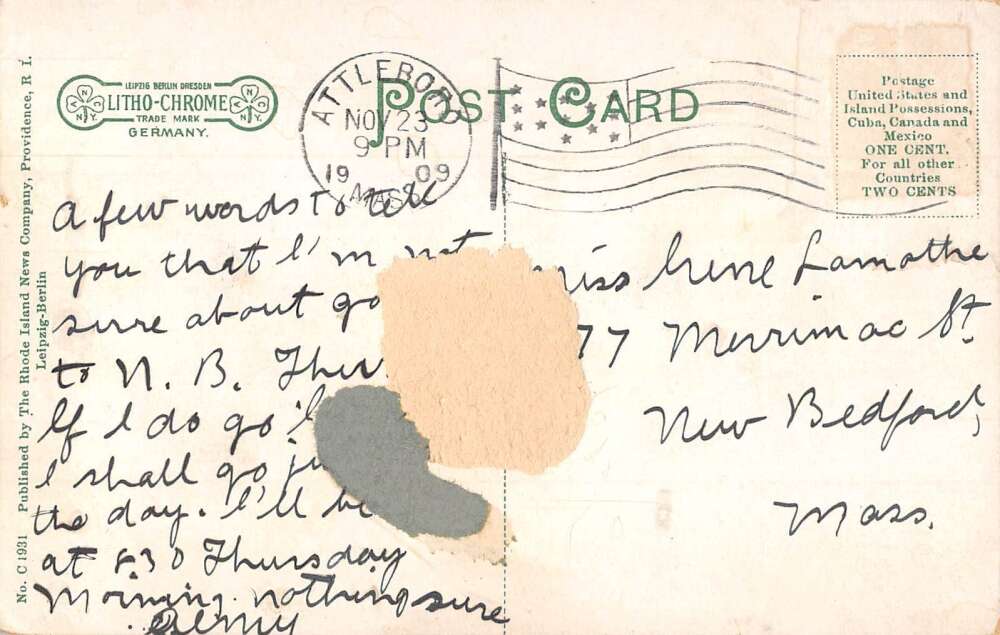 No. C 1931 Published by The Rhode Island News Company, Providence, R. I.
Leipzig-Berlin
LEIPZIG BERLIN DRESDEN
LITHO-CHROME
TRADE MARK
GERMANY.
N Y
N.Y.
ATTLEBORO
NOV 23
9 PM
19 09
MASS.
POST CARD
Postage
United States and
Island Possessions,
Cuba, Canada and
Mexico
ONE CENT.
For all other
Countries
TWO CENTS
A few words to tell
you that I'm not
sure about go
to N. B. Thur
If I do go
I shall go ju
the day. I'll be
at 8 30 Thursday
Morning. nothing sure
iss Irene Lamothe
77 Merrimac St.
New Bedford,
Mass.